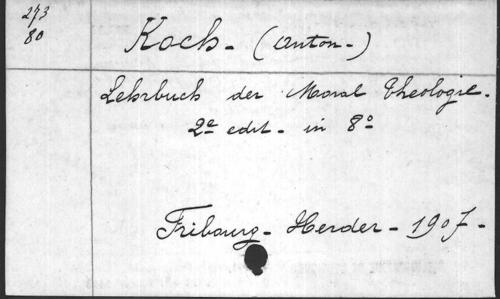 273
80
Koch - (Anton -)
Lehrbuch der Moral Theologie -
2e edit - in 8o
Fribourg - Herder - 1907 -